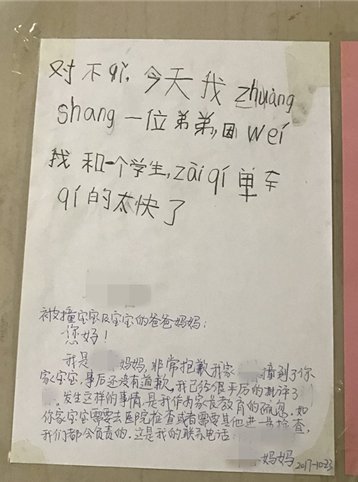 对不qǐ,今天我zhuàng
shang一位弟弟,因wéi
我和一个学生,zài qí单车
qí的太快了
被撞宝宝及宝宝的爸爸妈妈:
您好!
我是 妈妈,非常抱歉我家 撞到了你
家宝宝,事后还没有道歉。我已经很严厉的批评了
,发生这样的事情是我作为家长教育的疏忽,如
你家宝宝需要去医院检查或者需要其他进一步检查,
我们都会负责的,这是我的联系电话:
妈妈 2017-10-23